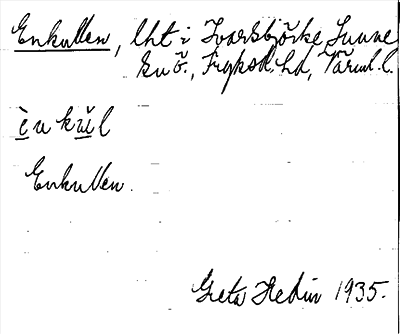 Enkullen, lht i Ivarsbjörke Sunne
sn ö., Fryksd. hd, Värml. l.
è n k ŭ l
Enkullen.
Greta Hedin 1935.